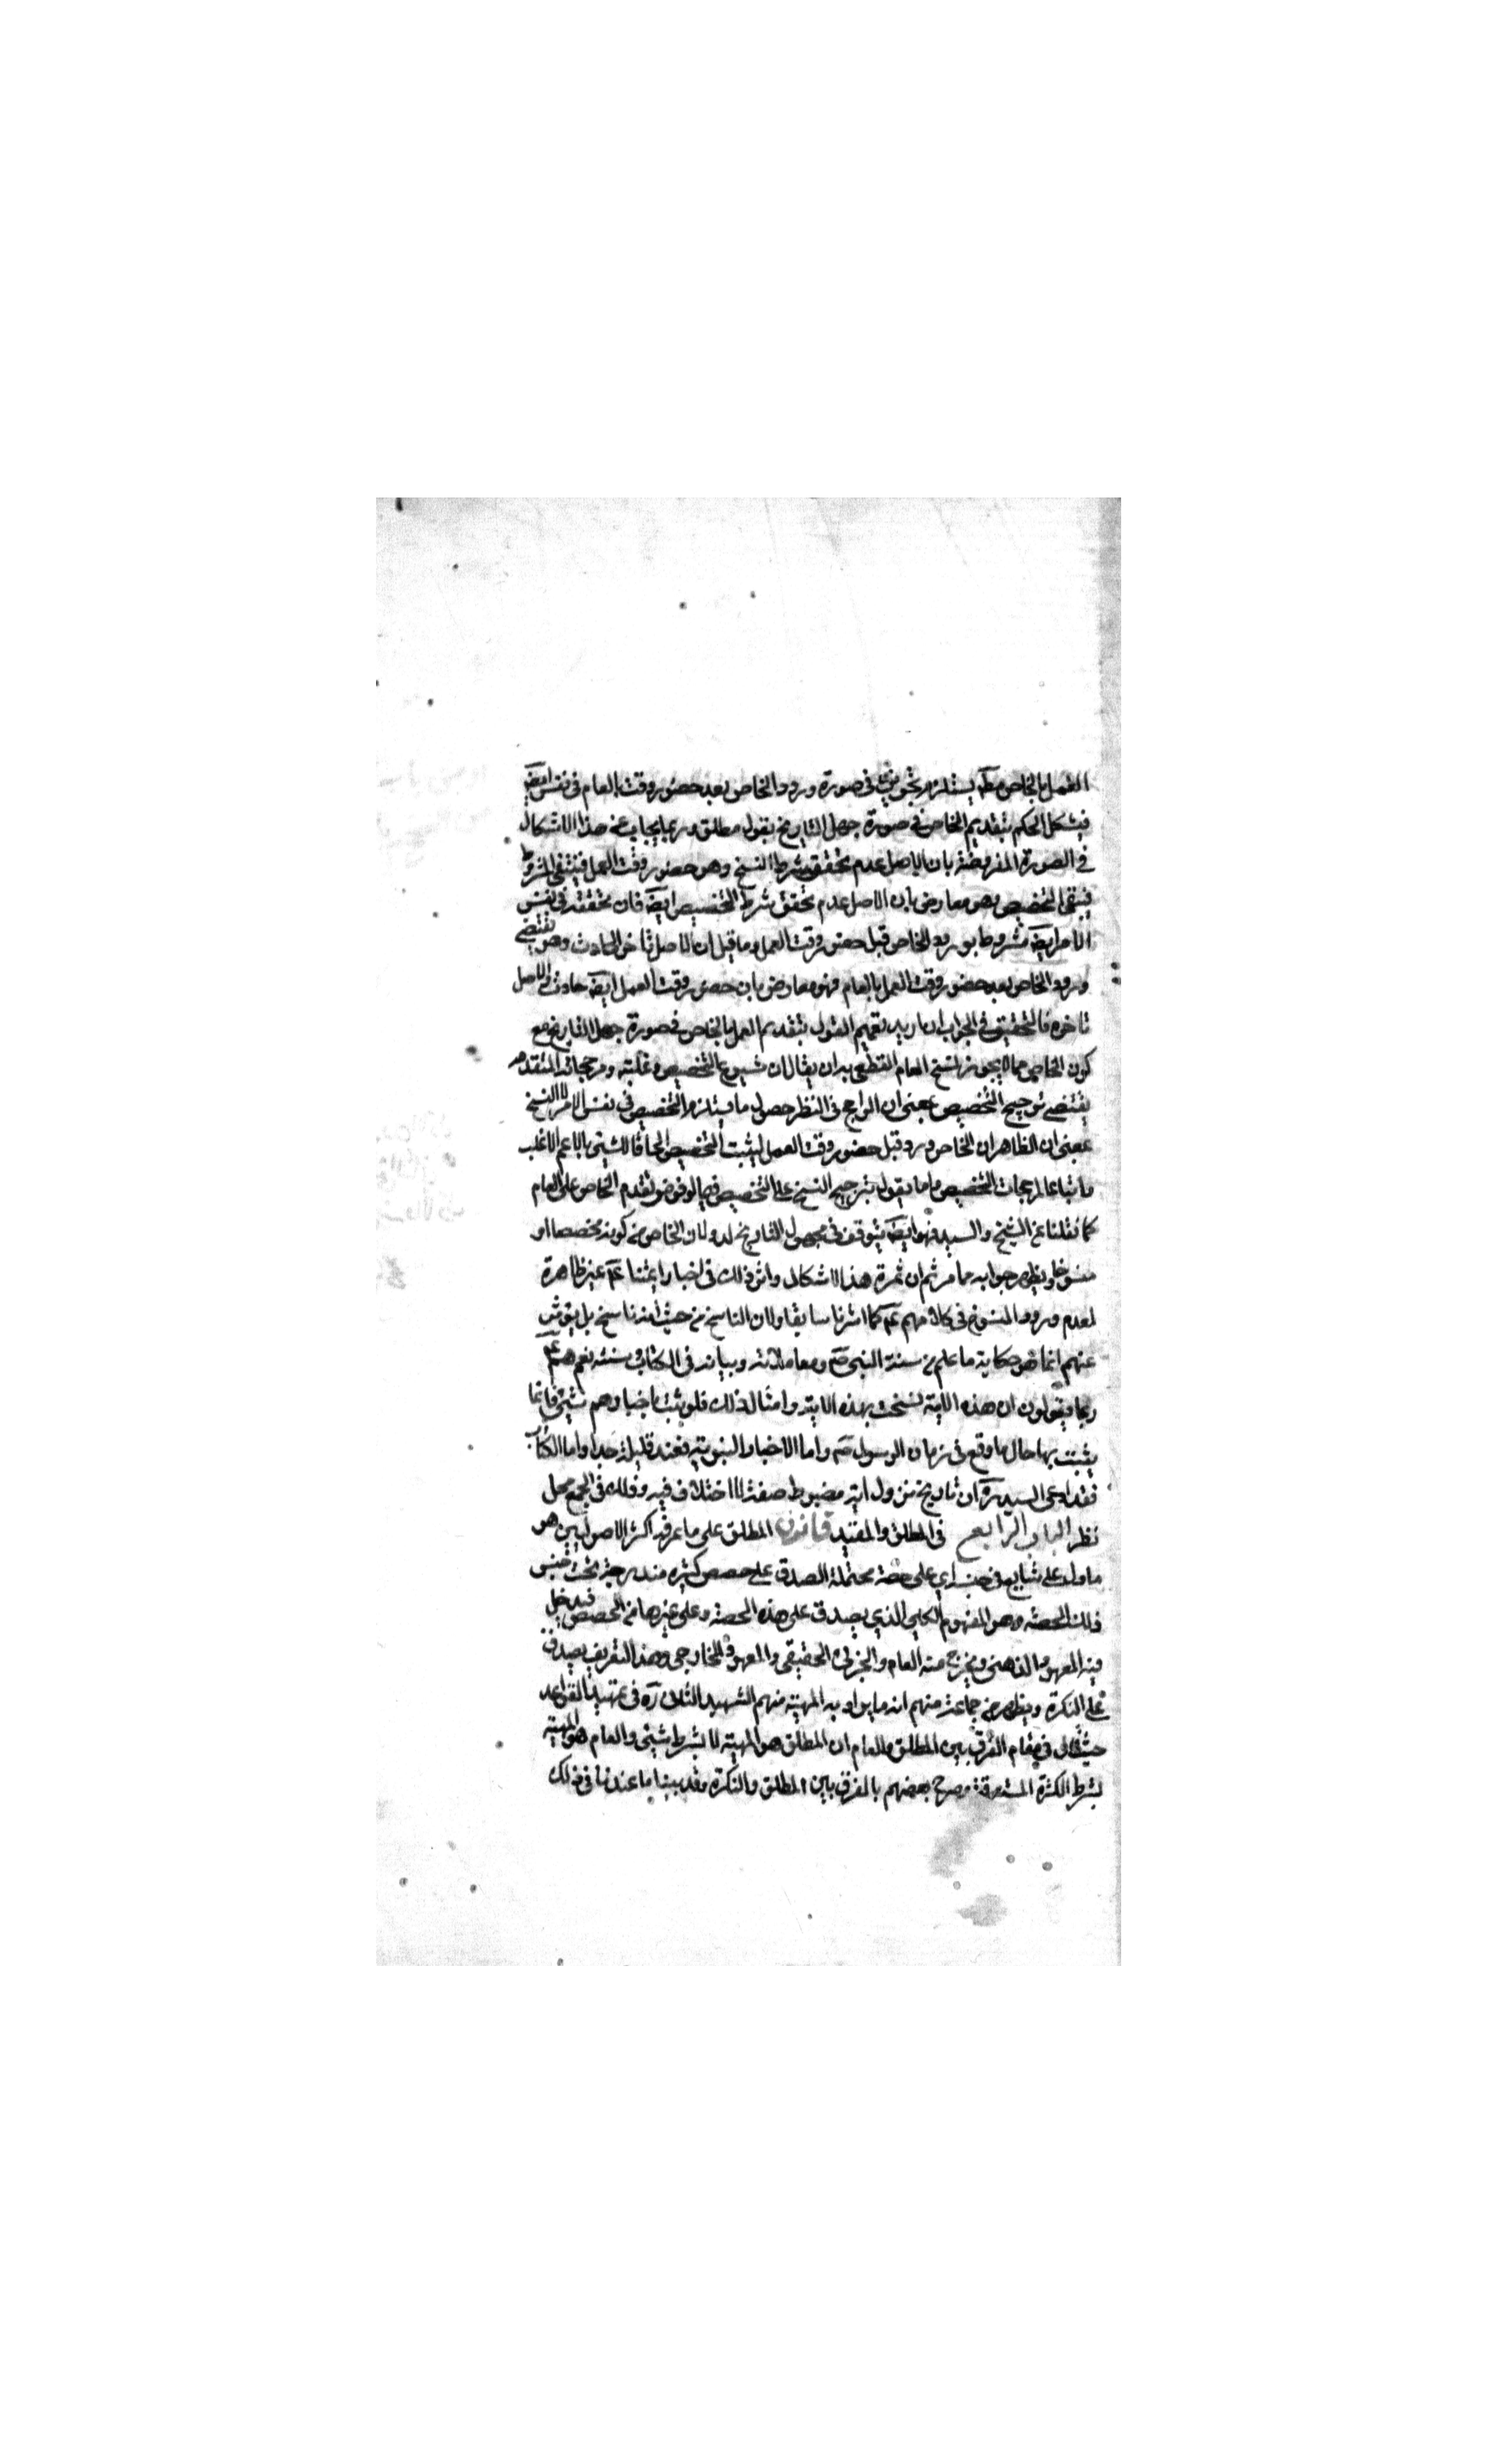 العمل بالخاص مطـ يستلزم تجويزه فى صورة ورود الخاص بعد حضور وقت العام فى نفس
فيشكل الحكم بتقديم الخاص فى صورة جهل التاريخ بقول مطلق وربما يجاب عن هذا الاشكال
فى الصورة المفروضة بان الاصل عدم تحقق شرط النسخ وهو حضور وقت العمل فينتفى المشروط
فيبقى التخصيص وهو معارض بان الاصل عدم تحقق شرط التخصيص ايضَ فان تحققه فى نفس
الامر ايضَ مشروط بورود الخاص قبل حضور وقت العمل وما قيل ان الاصل تاخر الحادث وهو يقتضى
ورود الخاص بعد حضور وقت العمل بالعام فهو معارض بان حضور وقت العمل ايضَ حادث والاصل
تاخره فالتحقيق فى الجواب ان اريد تعميم القول بتقديم العمل بالخاص فى صورة جهل التاريخ مع
كون الخاص مما لا يجوز نسخ العام القطعى به ان يقال ان شيوع التخصيص وغلبته ومرجحاته المتقدمه
يقتضى ترجيح التخصيص بمعنى ان الراجح فى النظر حصول ما يستلزم التخصيص فى نفس الامر لا النسخ
بمعنى ان الظاهر ان الخاص ورد قبل حضور وقت العمل ليثبت التخصيص الحاقا للشئ بالاعم الاغلب
واتباعا لمرجحات التخصيص واما بقول بترجيح النسخ على التخصيص فيما لو فرض تقدم الخاص على العام
كما نقلنا عن الشيخ والسيد فهو ايضَ يتوقف فى مجهول التاريخ لدوران الخاص من كونه مخصصا او
منسوخا ويظهر جوابه مما مر ثم ان ثمرة هذا الاشكال واثر ذلك فى اخبار ائمتنا عم غير ظاهرة
لعدم ورود المنسوخ فى كلامهم عم كما اشرنا سابقا ولان الناسخ من حيث انه ناسخ بل يؤثر
عنهم انما هو حكاية ما علم من سنة النبى صم ومعاملاته وبيانه فى الكتاب وسنته نعم هم عم
ربما يقولون ان هذه الاية نسخت بهذه الاية وامثال ذلك فلو ثبت باخبارهم شئ فانما
يثبت بها حال ما وقع فى زمان الرسول صم واما الاخبار النبوية فعند قليلة جدا واما الكتاب
فقد ادعى السيد ره ان تاريخ نزول ايه مضبوط صفته لا اختلاف فيه وذلك فى الجمع محل
نظر الباب الرابع فى المطلق والمقيد قانون المطلق على ما عرفه اكثر الاصوليين هو
ما دل على شايع فى جنسه اى على حصة محتملة الصدق على حصص كثيره مندرجة تحت جنس
ذلك الحصة وهو المفهوم الكلى الذى يصدق على هذه الحصة وعلى غيرها من الحصص فيدخل
فيه المعهود الذهنى ويخرج منه العام والجزئى الحقيقى والمعهود الخارجى وهذا التعريف يصدق
على النكرة ويظهر من جماعة منهم انه ما يراد به المهية منهم الشهيد الثانى ره فى تمهيد القواعد
حيث قال فى مقام الفرق بين المطلق والعام ان المطلق هو المهية لا بشرط شئ والعام هو المهية
بشرط الكثرة المستغرقة وصرح بعضهم بالفرق بين المطلق والنكرة وقد بينا ما عندنا فى ذلك